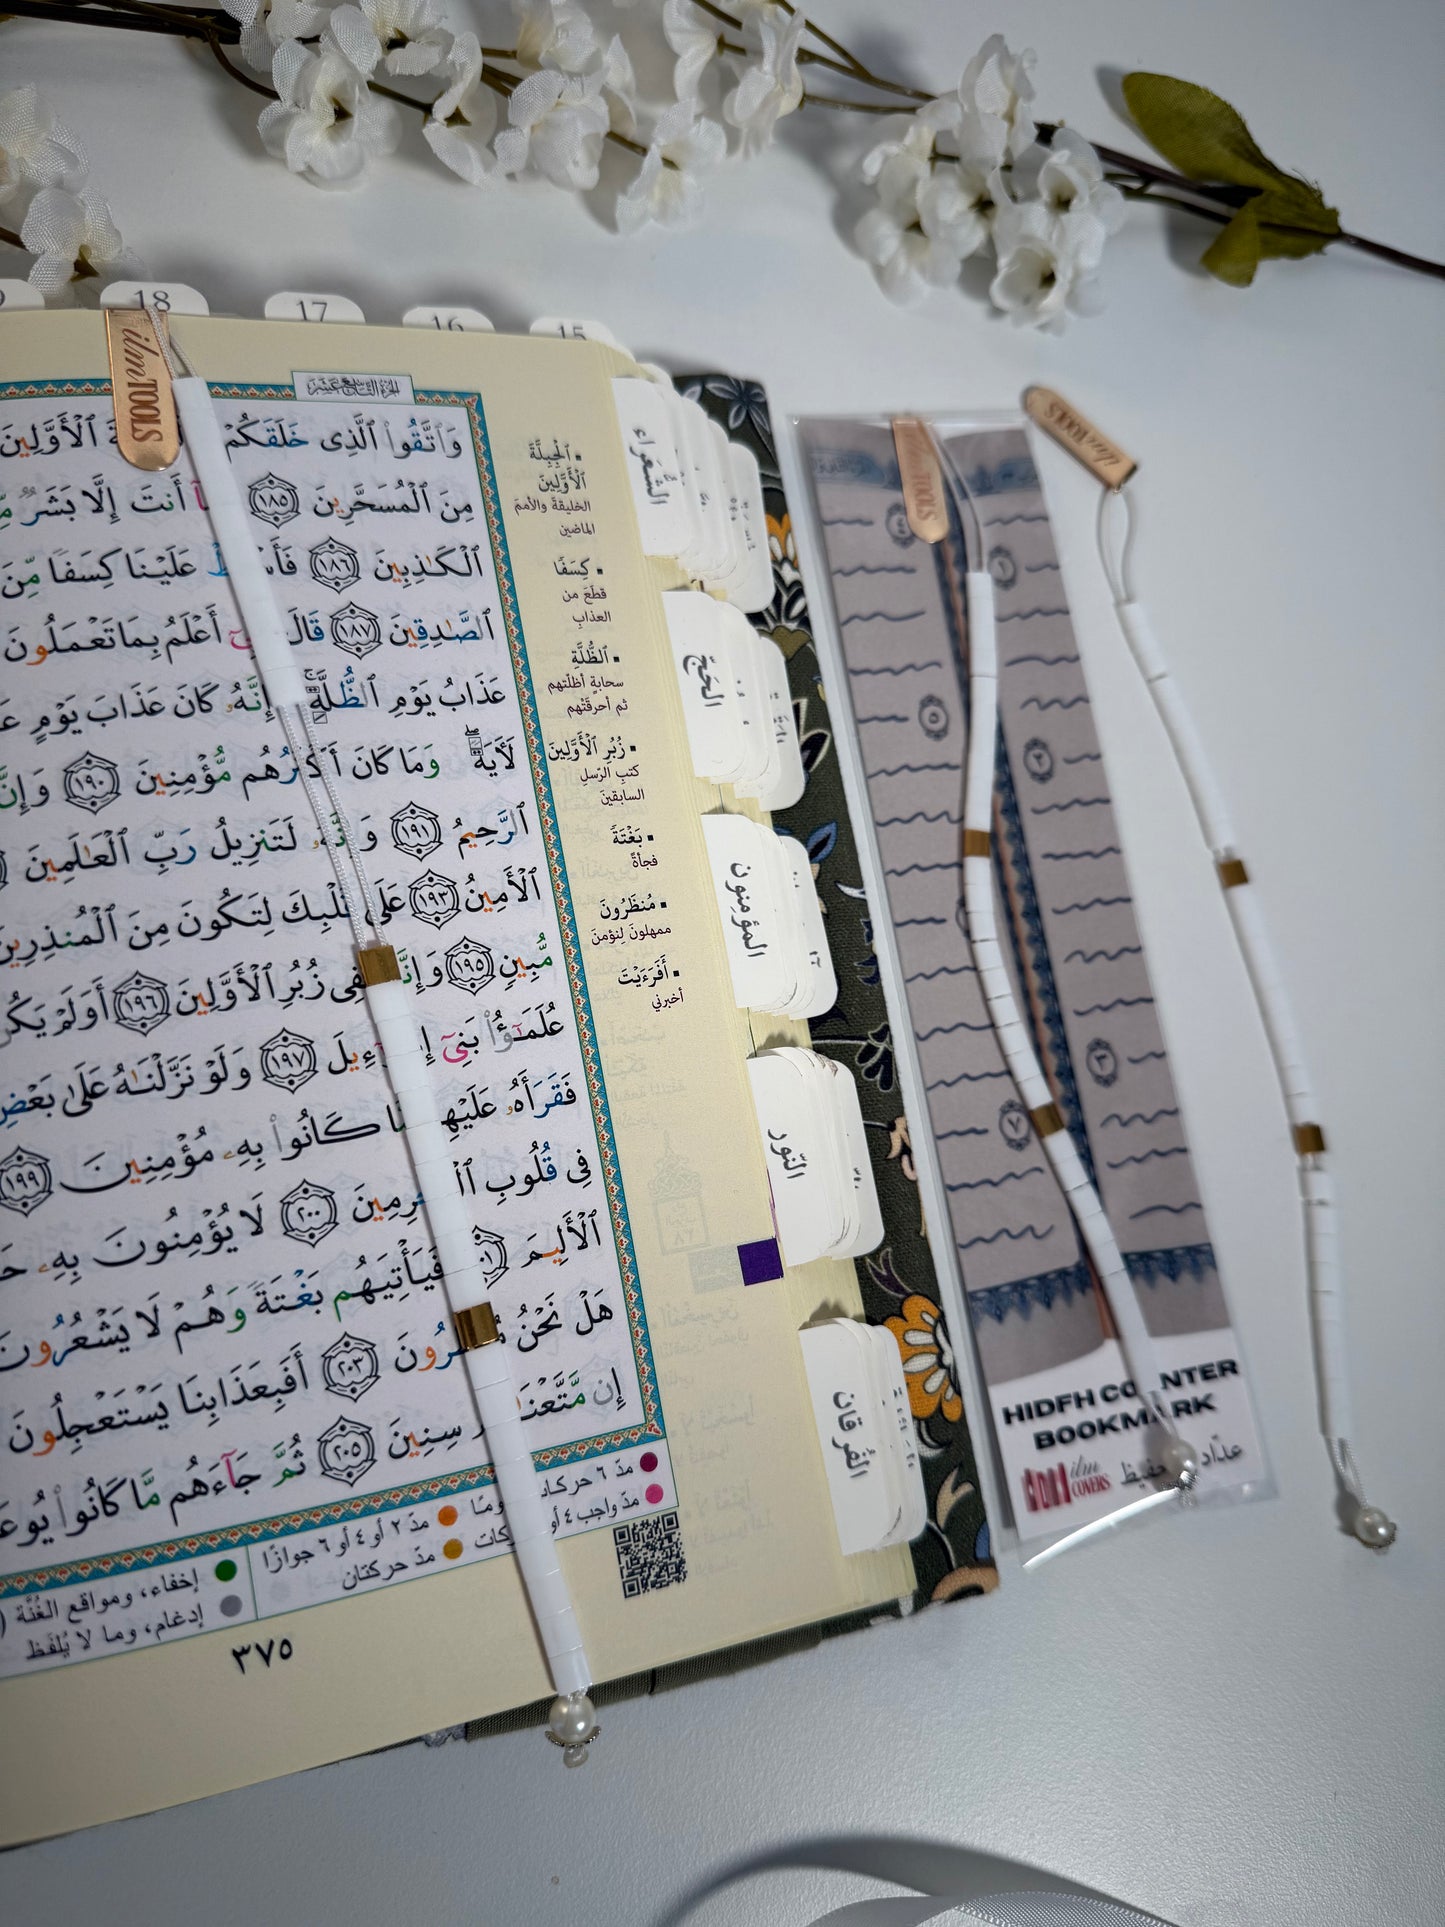 18
17
16
15
ilm TOOLS
الجزء التاسع عشر
وَٱتَّقُوا۟ ٱلَّذِى خَلَقَكُمْ ٱلْأَوَّلِينَ
١٨٥ مِنَ ٱلْمُسَحَّرِينَ أَنتَ إِلَّا بَشَرٌ
ٱلْكَـٰذِبِينَ ١٨٦ عَلَيْنَا كِسَفًا مِّنَ
ٱلصَّـٰدِقِينَ ١٨٧ أَعْلَمُ بِمَا تَعْمَلُونَ
عَذَابُ يَوْمِ ٱلظُّلَّةِ إِنَّهُۥ كَانَ عَذَابَ يَوْمٍ
لَـَٔايَةً وَمَا كَانَ أَكْثَرُهُم مُّؤْمِنِينَ ١٩٠ وَإِنَّ
ٱلرَّحِيمُ ١٩١ وَإِنَّهُۥ لَتَنزِيلُ رَبِّ ٱلْعَـٰلَمِينَ
ٱلْأَمِينُ ١٩٣ عَلَىٰ قَلْبِكَ لِتَكُونَ مِنَ ٱلْمُنذِرِينَ
مُّبِينٍ ١٩٥ وَإِنَّهُۥ لَفِى زُبُرِ ٱلْأَوَّلِينَ ١٩٦ أَوَلَمْ يَكُن
عُلَمَـٰٓؤُا۟ بَنِىٓ إِسْرَٰٓءِيلَ ١٩٧ وَلَوْ نَزَّلْنَـٰهُ عَلَىٰ بَعْضِ
فَقَرَأَهُۥ عَلَيْهِم مَّا كَانُوا۟ بِهِۦ مُؤْمِنِينَ ١٩٩
فِى قُلُوبِ ٱلْمُجْرِمِينَ ٢٠٠ لَا يُؤْمِنُونَ بِهِۦ
ٱلْأَلِيمَ فَيَأْتِيَهُم بَغْتَةً وَهُمْ لَا يَشْعُرُونَ
هَلْ نَحْنُ مُنظَرُونَ ٢٠٣ أَفَبِعَذَابِنَا يَسْتَعْجِلُونَ
إِن مَّتَّعْنَـٰهُمْ سِنِينَ ٢٠٥ ثُمَّ جَآءَهُم مَّا كَانُوا۟
ٱلْجِبِلَّةَ
ٱلْأَوَّلِينَ
الخليقة والأمم
الماضين
كِسَفًا
قطع من
العذاب
ٱلظُّلَّةِ
سحابة أظلّتهم
ثم أحرقتهم
زُبُرِ ٱلْأَوَّلِينَ
كتب الرّسل
السابقين
بَغْتَةً
فجأة
مُنظَرُونَ
ممهلون لنؤمن
أَفَرَءَيْتَ
أخبرني
مدّ ٦ حركات
مدّ واجب ٤ أو
مدّ ٢ أو ٤ أو ٦ جوازًا
مدّ حركتان
إخفاء، ومواقع الغُنَّة
إدغام، وما لا يُلفَظ
٣٧٥
الشُّعَراء
الحَجّ
المؤمِنون
النّور
الفُرقان
ilm TOOLS
٤
١
٥
٢
٣
٧
HIDFH COUNTER
BOOKMARK
ilm
COVERS
عدّاد حفيظ
ilm TOOLS